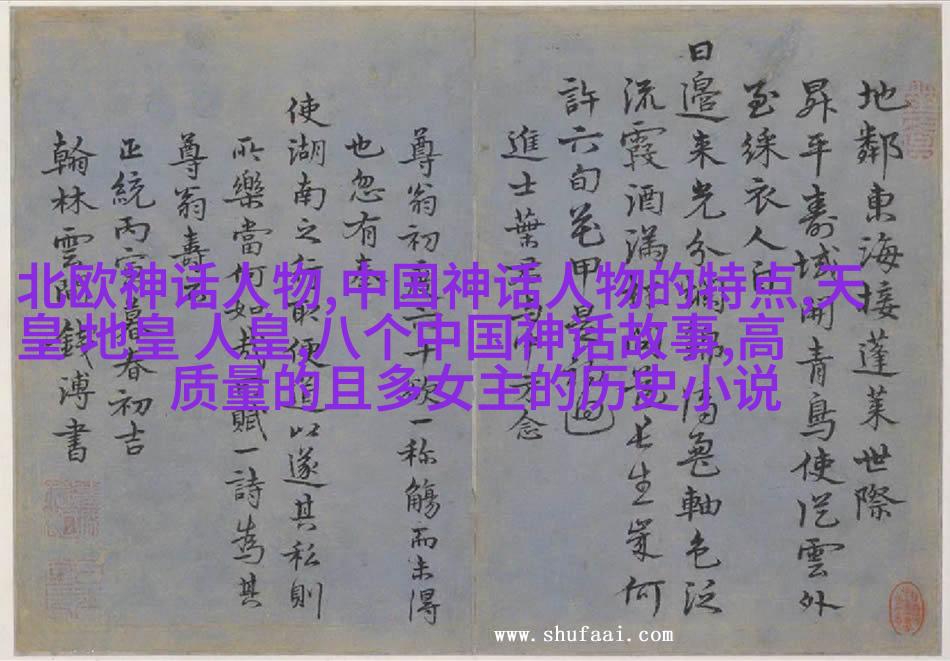 地鄰東海接蓬萊世際
昇平壽域開青鳥使從雲外
至綵衣人自
日邊來光分龜軸色泛
流霞酒滿長生何
許六旬花甲是
進士葉念
尊翁初度六十欲一称觴而未得
也忽有奉
使湖南之行取便道以遂其私則
所樂當何如哉賦一詩為其
尊翁壽云
正統丙寅暮春初吉
翰林雲間錢溥書
北欧神话人物,中国神话人物的特点,天
皇 地皇 人皇,八个中国神话故事,高
质量的且多女主的历史小说
www.shufaai.com